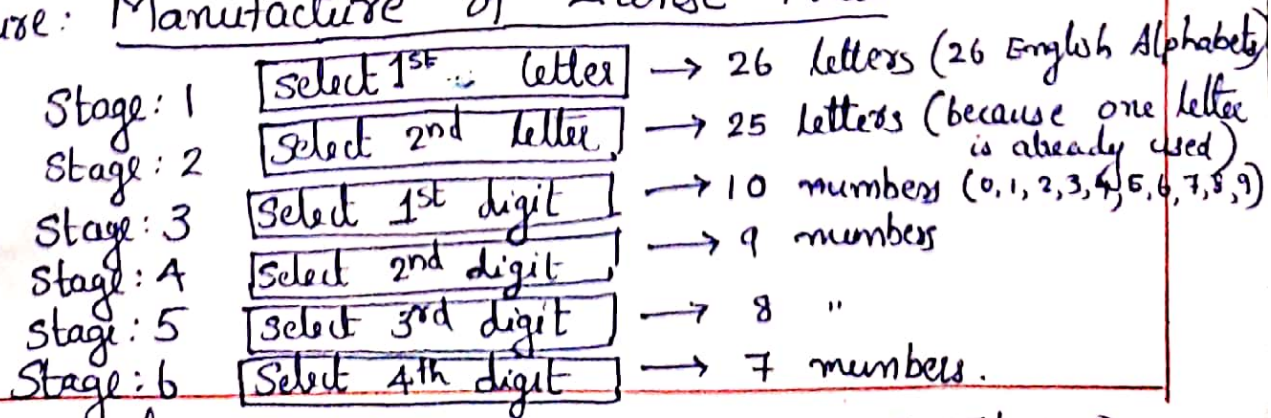 Manufacture of
Stage: 1 Select 1st letter → 26 letters (26 English Alphabets)
Stage: 2 Select 2nd letter → 25 letters (because one letter
is already used)
Stage: 3 Select 1st digit → 10 numbers (0,1,2,3,4,5,6,7,8,9)
Stage: 4 Select 2nd digit → 9 numbers
Stage: 5 Select 3rd digit → 8 "
Stage: 6 Select 4th digit → 7 numbers.